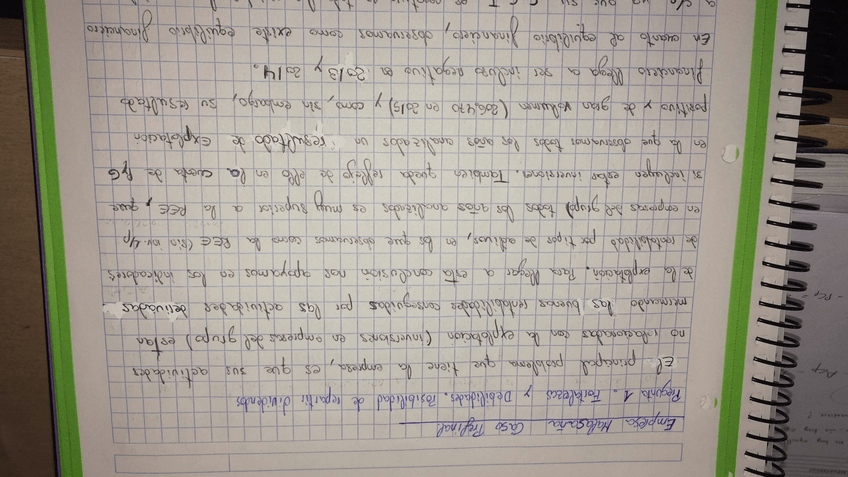 Empresa Malasaña Caso Prefinal
Pregunta 1. Fortalezas y Debilidades. Posibilidad de repartir dividendos
El principal problema que tiene la empresa, es que sus actividades
no relacionadas con la explotación (inversiones en empresas del grupo) estan
mermando las buenas rentabilidades conseguidas por las actividades derivadas
de la explotación. Para llegar a esta conclusion nos apoyamos en los indicadores
de rentabilidad por tipos de activos, en los que observamos como la REE (sin inv. l/p
en empresas del grupo) todos los años analizados es muy superior a la REE, que
si incluyen estas inversiones. Tambien queda reflejo de ello en la cuenta de PyG
en la que observamos todos los años analizados un resultado de explotación
positivo y de gran volumen (206.470 en 2015) y como, sin embargo, su resultado
financiero llega a ser incluso negativo en 2013 y 2014.
En cuanto al equilibrio financiero, observamos como existe equilibrio financiero